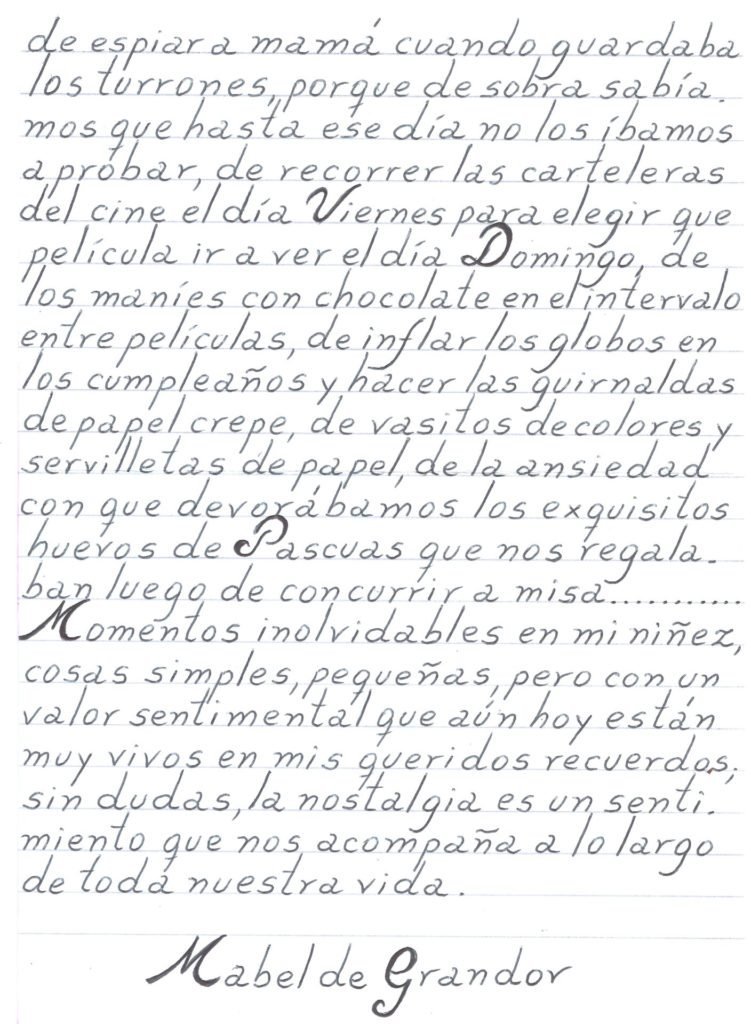 de espiar a mamá cuando guardaba
los turrones, porque de sobra sabía.
mos que hasta ese día no los íbamos
a probar, de recorrer las carteleras
del cine el día Viernes para elegir que
película ir a ver el día Domingo, de
los maníes con chocolate en el intervalo
entre películas, de inflar los globos en
los cumpleaños y hacer las guirnaldas
de papel crepe, de vasitos de colores y
servilletas de papel, de la ansiedad
con que devorábamos los exquisitos
huevos de Pascuas que nos regala.
ban luego de concurrir a misa............
Momentos inolvidables en mi niñez,
cosas simples, pequeñas, pero con un
valor sentimental que aún hoy están
muy vivos en mis queridos recuerdos;
sin dudas, la nostalgia es un senti.
miento que nos acompaña a lo largo
de toda nuestra vida.
Mabel de Grandor